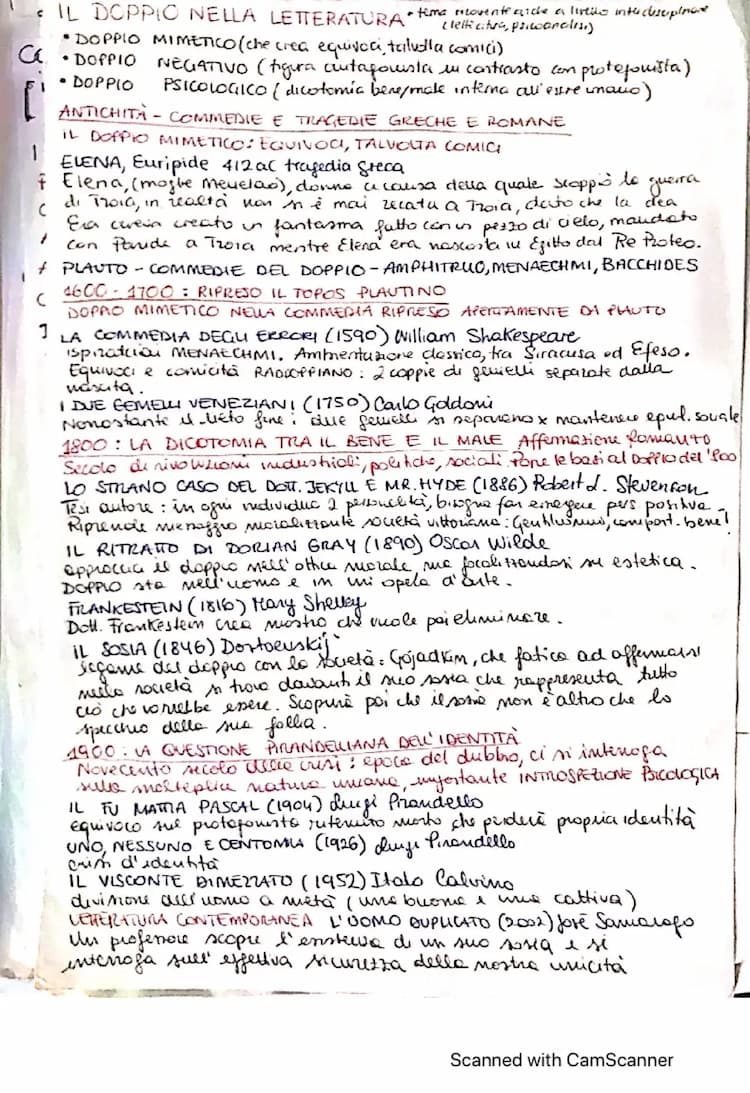 IL DOPPIO NELLA LETTERATURA • tema ricorrente anche a livello interdisciplinare
(elettricità, psicoanalisi)
• DOPPIO MIMETICO (che crea equivoci, talvolta comici)
• DOPPIO NEGATIVO (figura antagonista in contrasto con protagonista)
• DOPPIO PSICOLOGICO (dicotomia bene/male interna all'essere umano)
ANTICHITÀ - COMMEDIE E TRAGEDIE GRECHE E ROMANE
IL DOPPIO MIMETICO: EQUIVOCI, TALVOLTA COMICI
ELENA, Euripide 412 aC tragedia greca
Elena, (moglie Menelao), donna a causa della quale scoppiò la guerra
di Troia, in realtà non si è mai recata a Troia, dato che la dea
Era aveva creato un fantasma fatto con un pezzo di cielo, mandato
con Paride a Troia mentre Elena era nascosta in Egitto dal Re Proteo.
PLAUTO - COMMEDIE DEL DOPPIO - AMPHITRUO, MENAECHMI, BACCHIDES
1600 - 1700 : RIPRESO IL TOPOS PLAUTINO
DOPPIO MIMETICO NELLA COMMEDIA RIPRESO APERTAMENTE DA PLAUTO
LA COMMEDIA DEGLI ERRORI (1590) William Shakespeare
MENAECHMI. Ambientazione classica, tra Siracusa ed Efeso.
Equivoci e comicità RADDOPPIANO : 2 coppie di gemelli separate dalla
nascita.
I DUE GEMELLI VENEZIANI (1750) Carlo Goldoni
Nonostante il lieto fine i due gemelli si separano x mantenere equil. sociale
1800 : LA DICOTOMIA TRA IL BENE E IL MALE Affermazione Romanzo
Secolo di rivoluzioni industriali, politiche, sociali. Pone le basi al DOPPIO del '900
LO STRANO CASO DEL DOTT. JEKYLL E MR. HYDE (1886) Robert L. Stevenson
Tesi autore : in ogni individuo 2 personalità, bisogna far emergere pers. positiva.
Riprende messaggio moralizzante società vittoriana : Gentlusmus, comport. bene!
IL RITRATTO DI DORIAN GRAY (1890) Oscar Wilde
approccia il doppio nell'ottica morale, ma focalizzandosi su estetica.
DOPPIO sta nell'uomo e in un'opera d'arte.
FRANKESTEIN (1816) Mary Shelley
Dott. Frankestein crea mostro che vuole poi eliminare.
IL SOSIA (1846) Dostoevskij
legame del doppio con la società : Gojadkin, che fatica ad affermarsi
nella società si trova davanti il suo sosia che rappresenta tutto
ciò che vorrebbe essere. Scoprirà poi che il sosia non è altro che lo
specchio della sua follia.
1900 : LA QUESTIONE PIRANDELLIANA DELL'IDENTITÀ
Novecento secolo delle crisi : epoca del dubbio, ci si interroga
sulla molteplice natura umana, importante INTROSPEZIONE PSICOLOGICA
IL FU MATTIA PASCAL (1904) Luigi Pirandello
equivoco sul protagonista ritenuto morto che perderà propria identità
UNO, NESSUNO E CENTOMILA (1926) Luigi Pirandello
crisi d'identità
IL VISCONTE DIMEZZATO (1952) Italo Calvino
divisione dell'uomo a metà (una buona e una cattiva)
LETTERATURA CONTEMPORANEA L'UOMO DUPLICATO (2002) José Saramago
Un professore scopre l'esistenza di un suo sosia e si
interroga sull'effettiva sicurezza della nostra unicità
Scanned with CamScanner